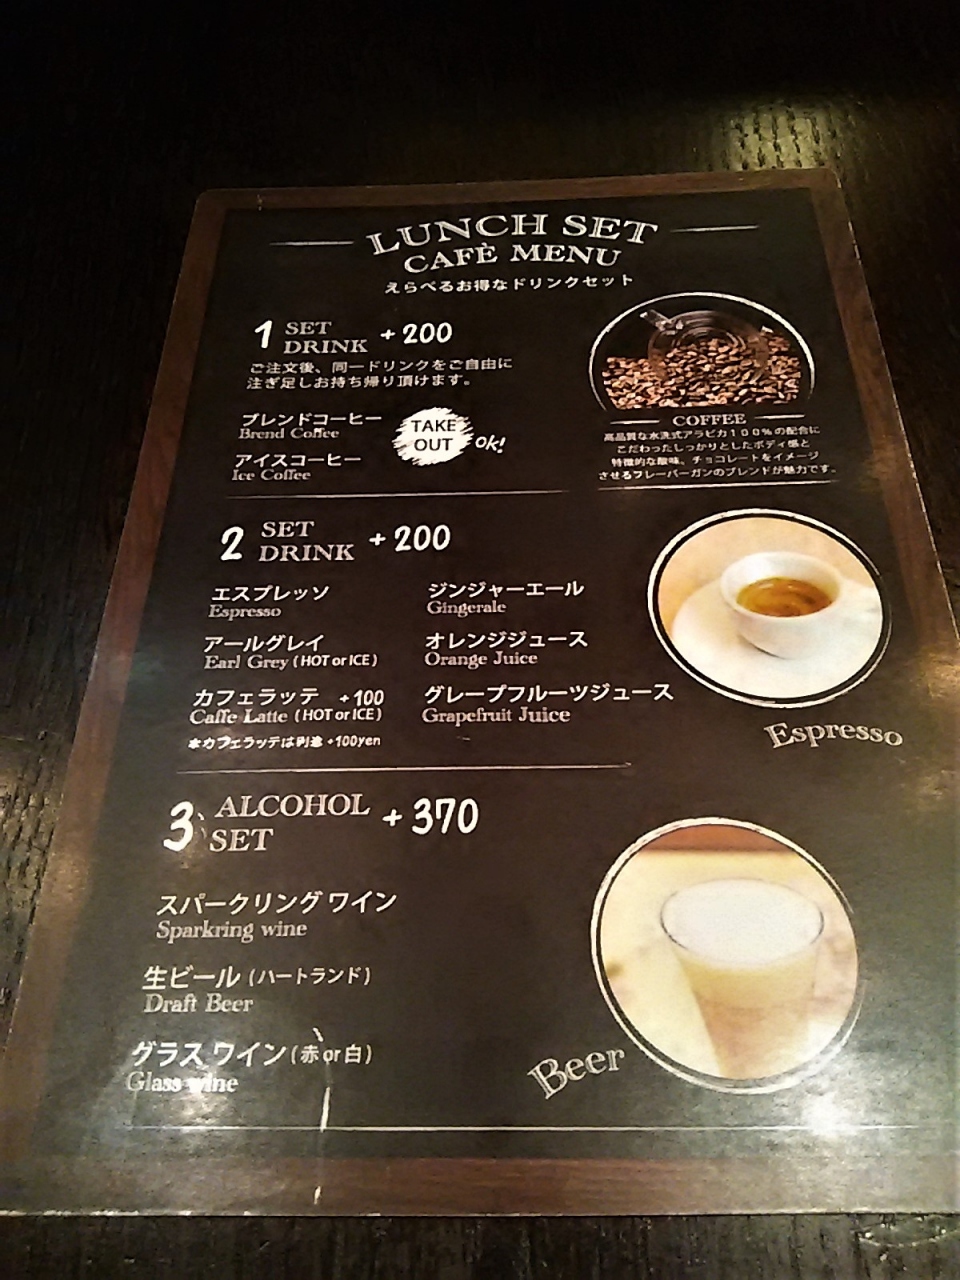 LUNCH SET
CAFÈ MENU
えらべるお得なドリンクセット
1 SET DRINK +200
ご注文後、同一ドリンクをご自由に
注ぎ足しお持ち帰り頂けます。
ブレンドコーヒー
Brend Coffee
アイスコーヒー
Ice Coffee
TAKE
OUT ok!
COFFEE
高品質な水洗式アラビカ100%の配合に
こだわったしっかりとしたボディ感と
特徴的な酸味、チョコレートをイメージ
させるフレーバーガンのブレンドが魅力です。
2 SET DRINK +200
エスプレッソ
Espresso
アールグレイ
Earl Grey (HOT or ICE)
カフェラッテ +100
Caffe Latte (HOT or ICE)
*カフェラッテは別途+100yen
ジンジャーエール
Gingerale
オレンジジュース
Orange Juice
グレープフルーツジュース
Grapefruit Juice
Espresso
3 ALCOHOL SET +370
スパークリングワイン
Sparkring wine
生ビール (ハートランド)
Draft Beer
グラスワイン (赤 or 白)
Glass wine
Beer